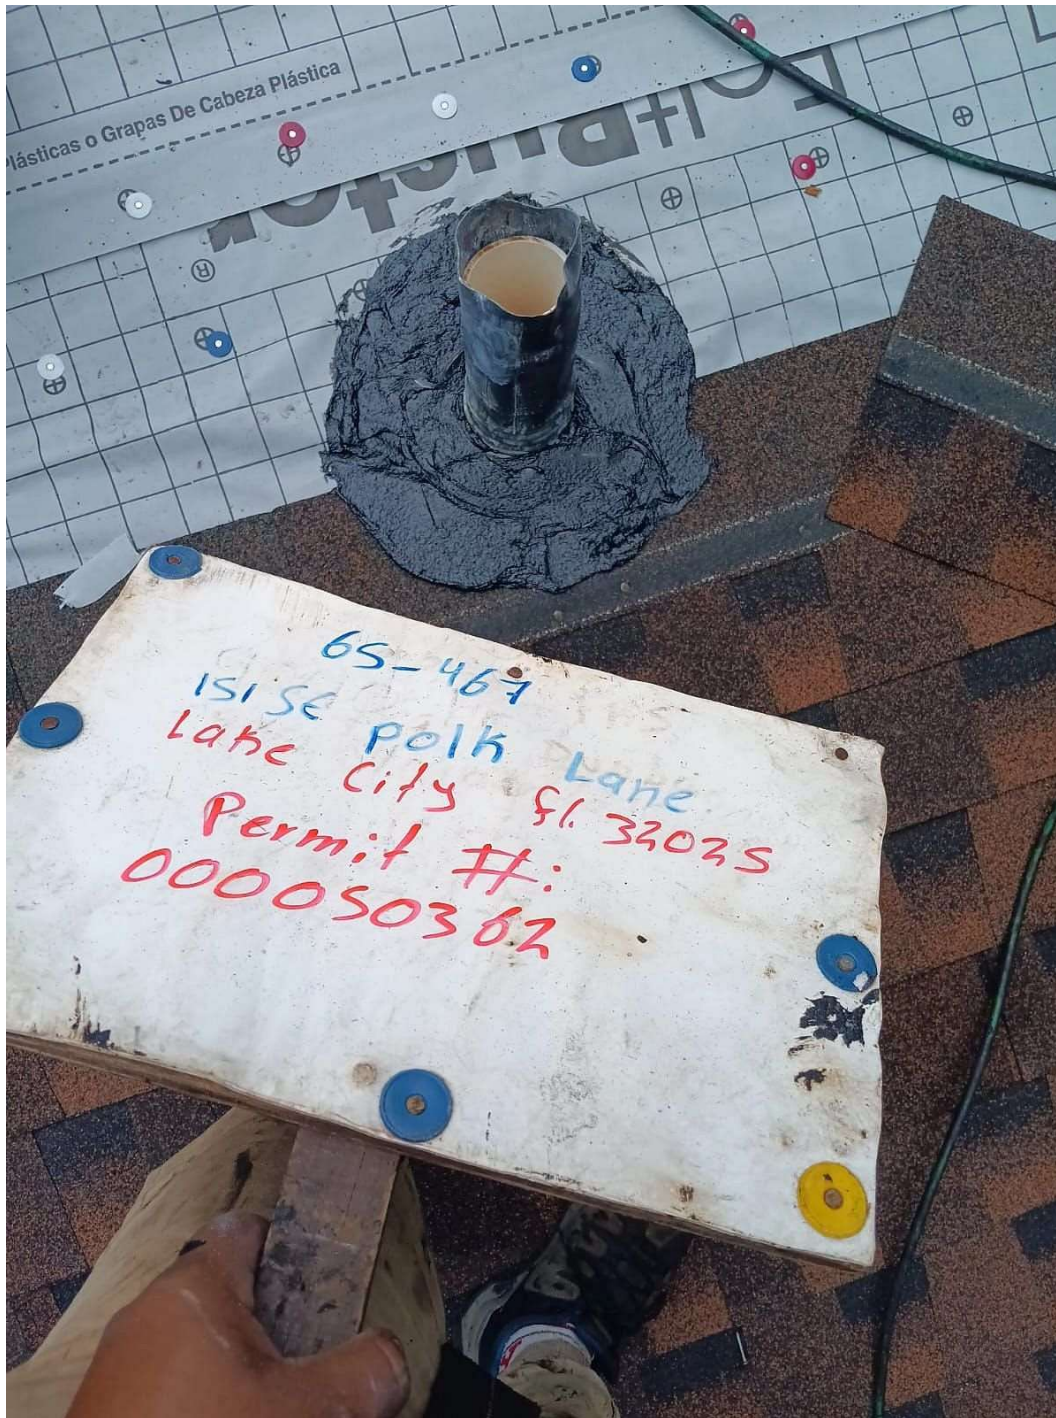 Plásticas o Grapas De Cabeza Plástica
®
65-467
151 SE Polk Lane
Lake City fl. 32025
Permit #:
000050362